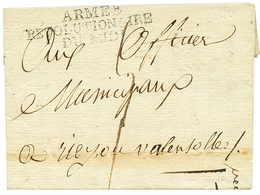 ARMEE
REVOLUTIONAIRE
DU MIDI
Aux Officier
Municipaux
a riez ou valensolles